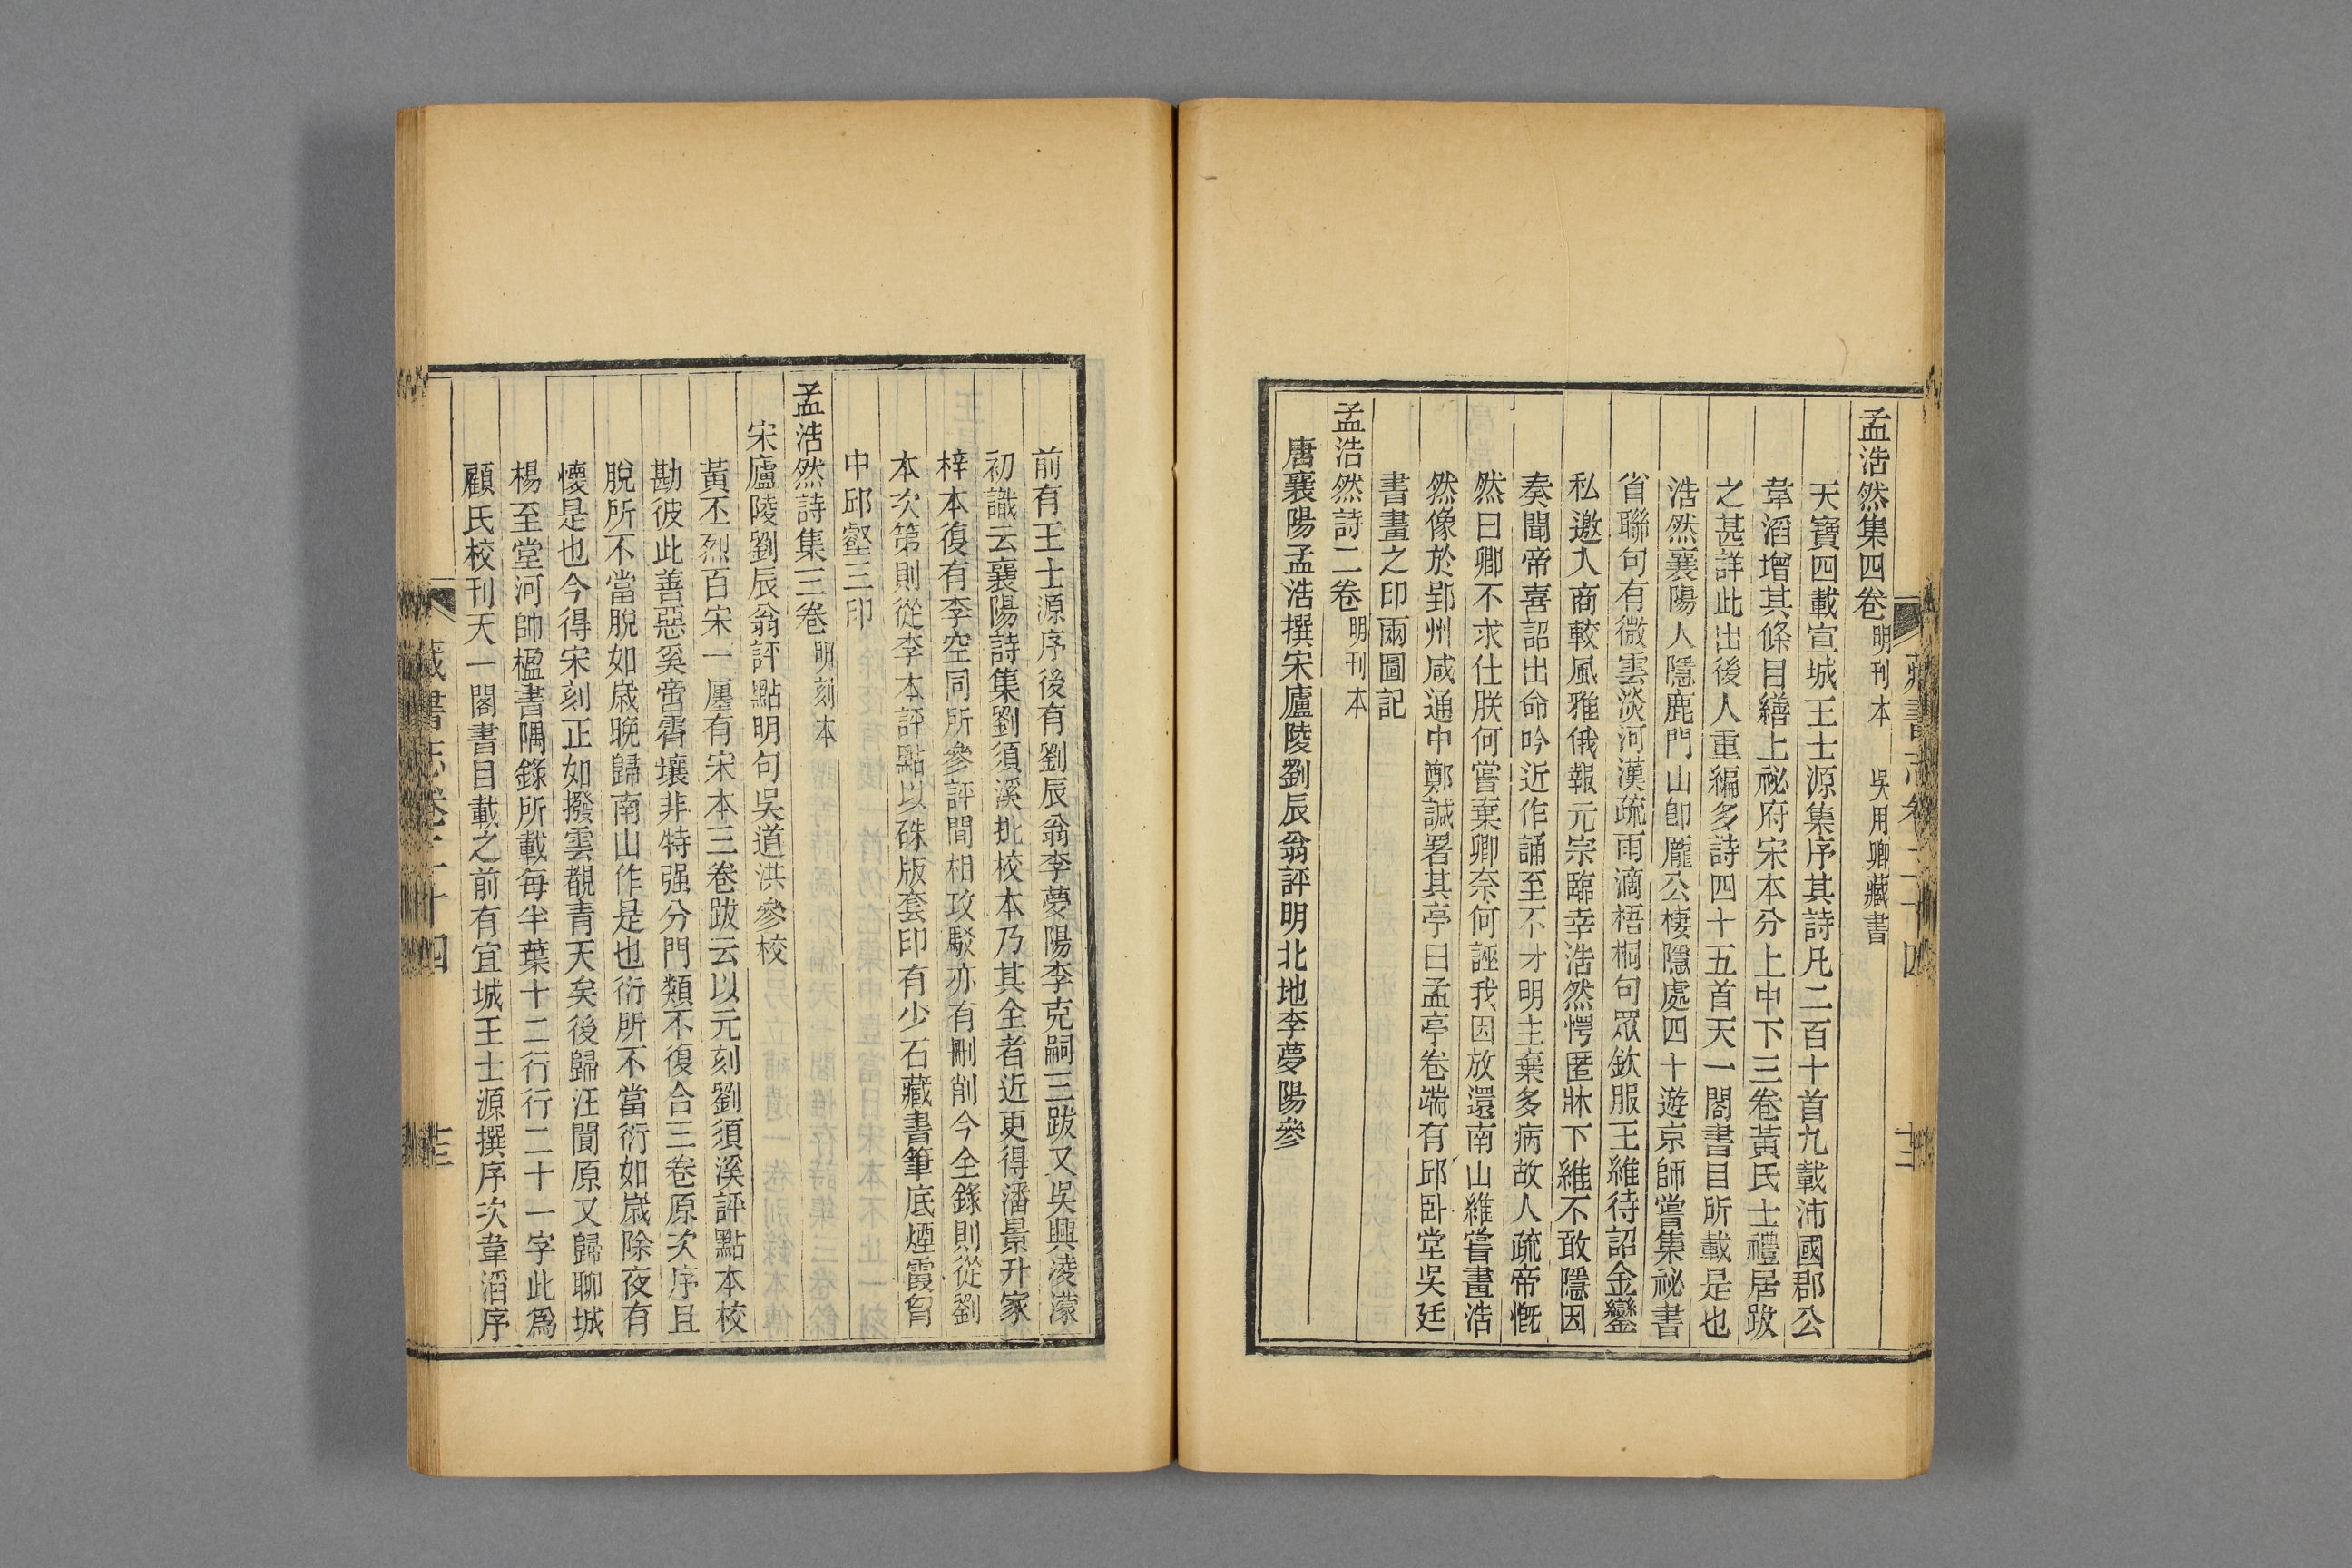 孟浩然集四卷 明刊本 吳用卿藏書
天寶四載宣城王士源集序其詩凡二百十首九載沛國郡公
韋滔增其條目繕上祕府宋本分上中下三卷黃氏士禮居跋
之甚詳此出後人重編多詩四十五首天一閣書目所載是也
浩然襄陽人隱鹿門山卽龐公棲隱處四十遊京師嘗集祕書
省聯句有微雲淡河漢疏雨滴梧桐句眾欽服王維待詔金鑾
私邀入商較風雅俄報元宗臨幸浩然愕匿牀下維不敢隱因
奏聞帝喜詔出命吟近作誦至不才明主棄多病故人疏帝慨
然曰卿不求仕朕何嘗棄卿奈何誣我因放還南山維嘗畫浩
然像於郢州咸通中鄭諴署其亭曰孟亭卷端有邱卧堂吳廷
書畫之印兩圖記
孟浩然詩二卷 明刊本
唐襄陽孟浩撰宋廬陵劉辰翁評明北地李夢陽參
前有王士源序後有劉辰翁李夢陽李克嗣三跋又吳興淩濛
初識云襄陽詩集劉須溪批校本乃其全者近更得潘景升家
梓本復有李空同所參評間相攻駁亦有刪削今全錄則從劉
本次第則從李本評點以硃版套印有少石藏書筆底煙霞胷
中邱壑三印
孟浩然詩集三卷 明刻本
宋廬陵劉辰翁評點明句吳道洪參校
黃丕烈百宋一廛有宋本三卷跋云以元刻劉須溪評點本校
勘彼此善惡奚啻霄壤非特强分門類不復合三卷原次序且
脫所不當脫如歲晚歸南山作是也衍所不當衍如歲除夜有
懷是也今得宋刻正如撥雲覩青天矣後歸汪閬原又歸聊城
楊至堂河帥楹書隅錄所載每半葉十二行行二十一字此爲
顧氏校刊天一閣書目載之前有宜城王士源撰序次韋滔序
藏書志卷二十四